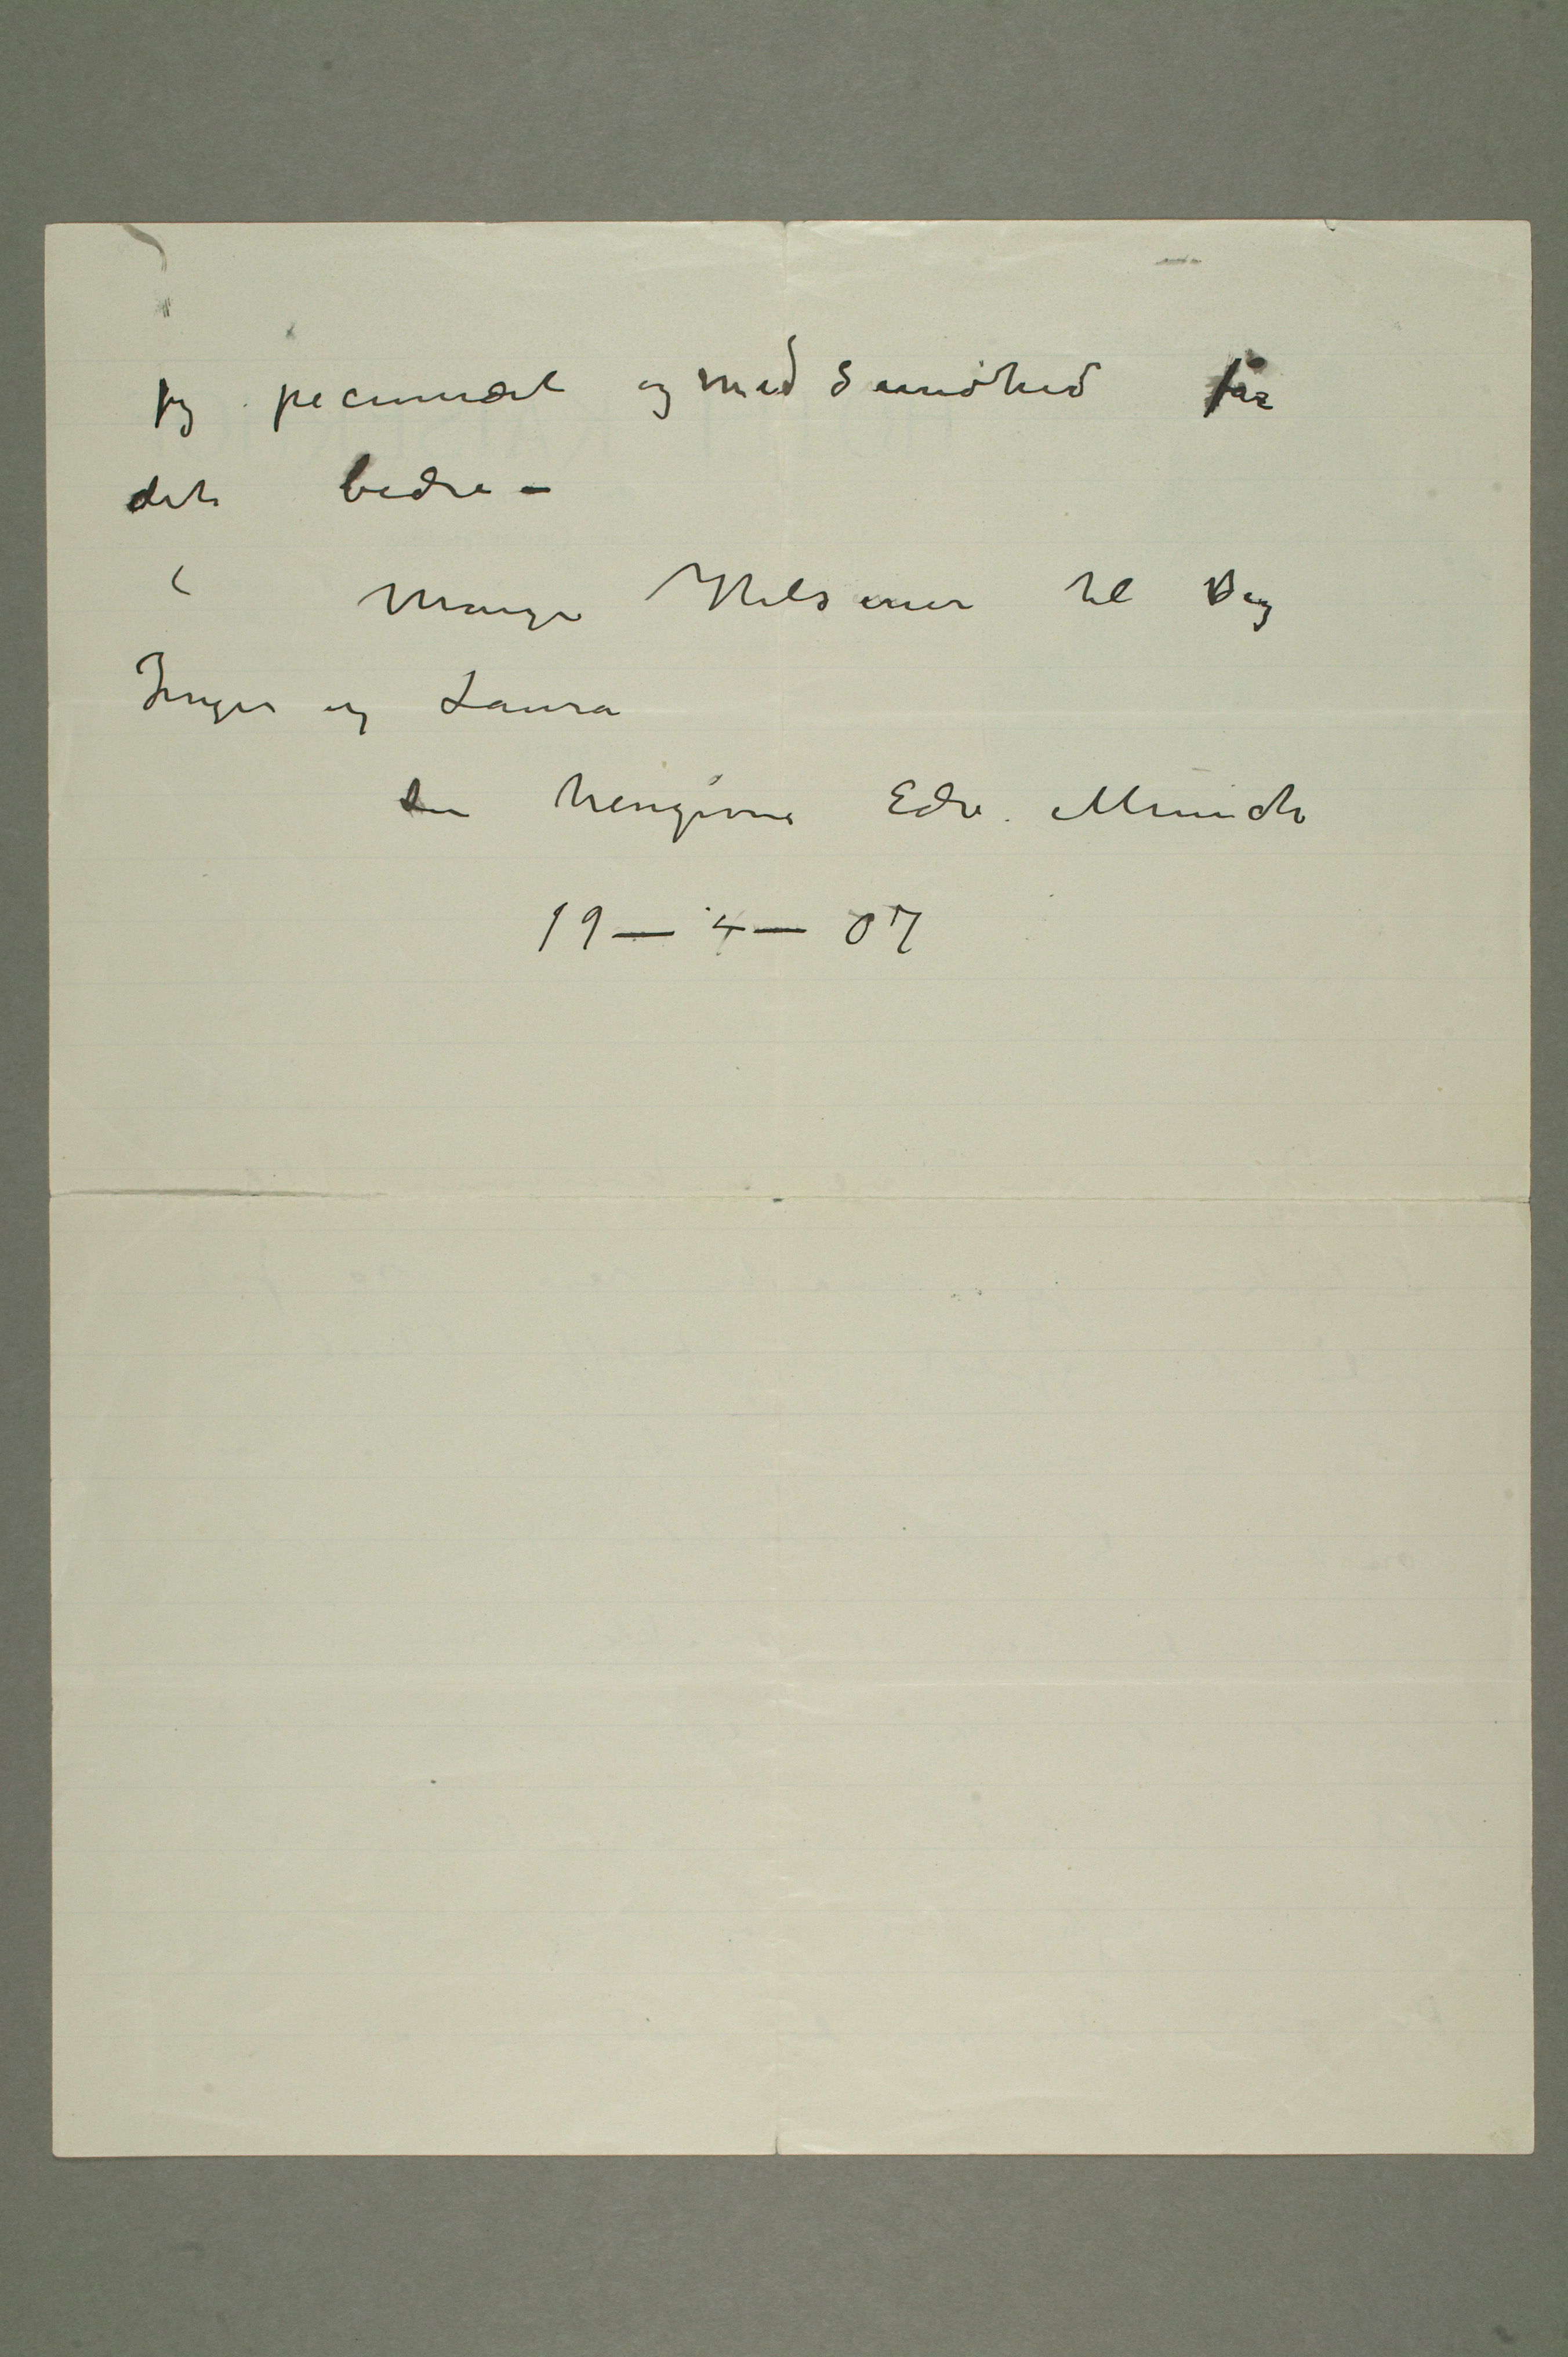 jeg pecuniært og med Sundhed får
det bedre –
Mange Hilsener til Dig
Inger og Laura
Din hengivne Edv. Munch
19 – 4 – 07